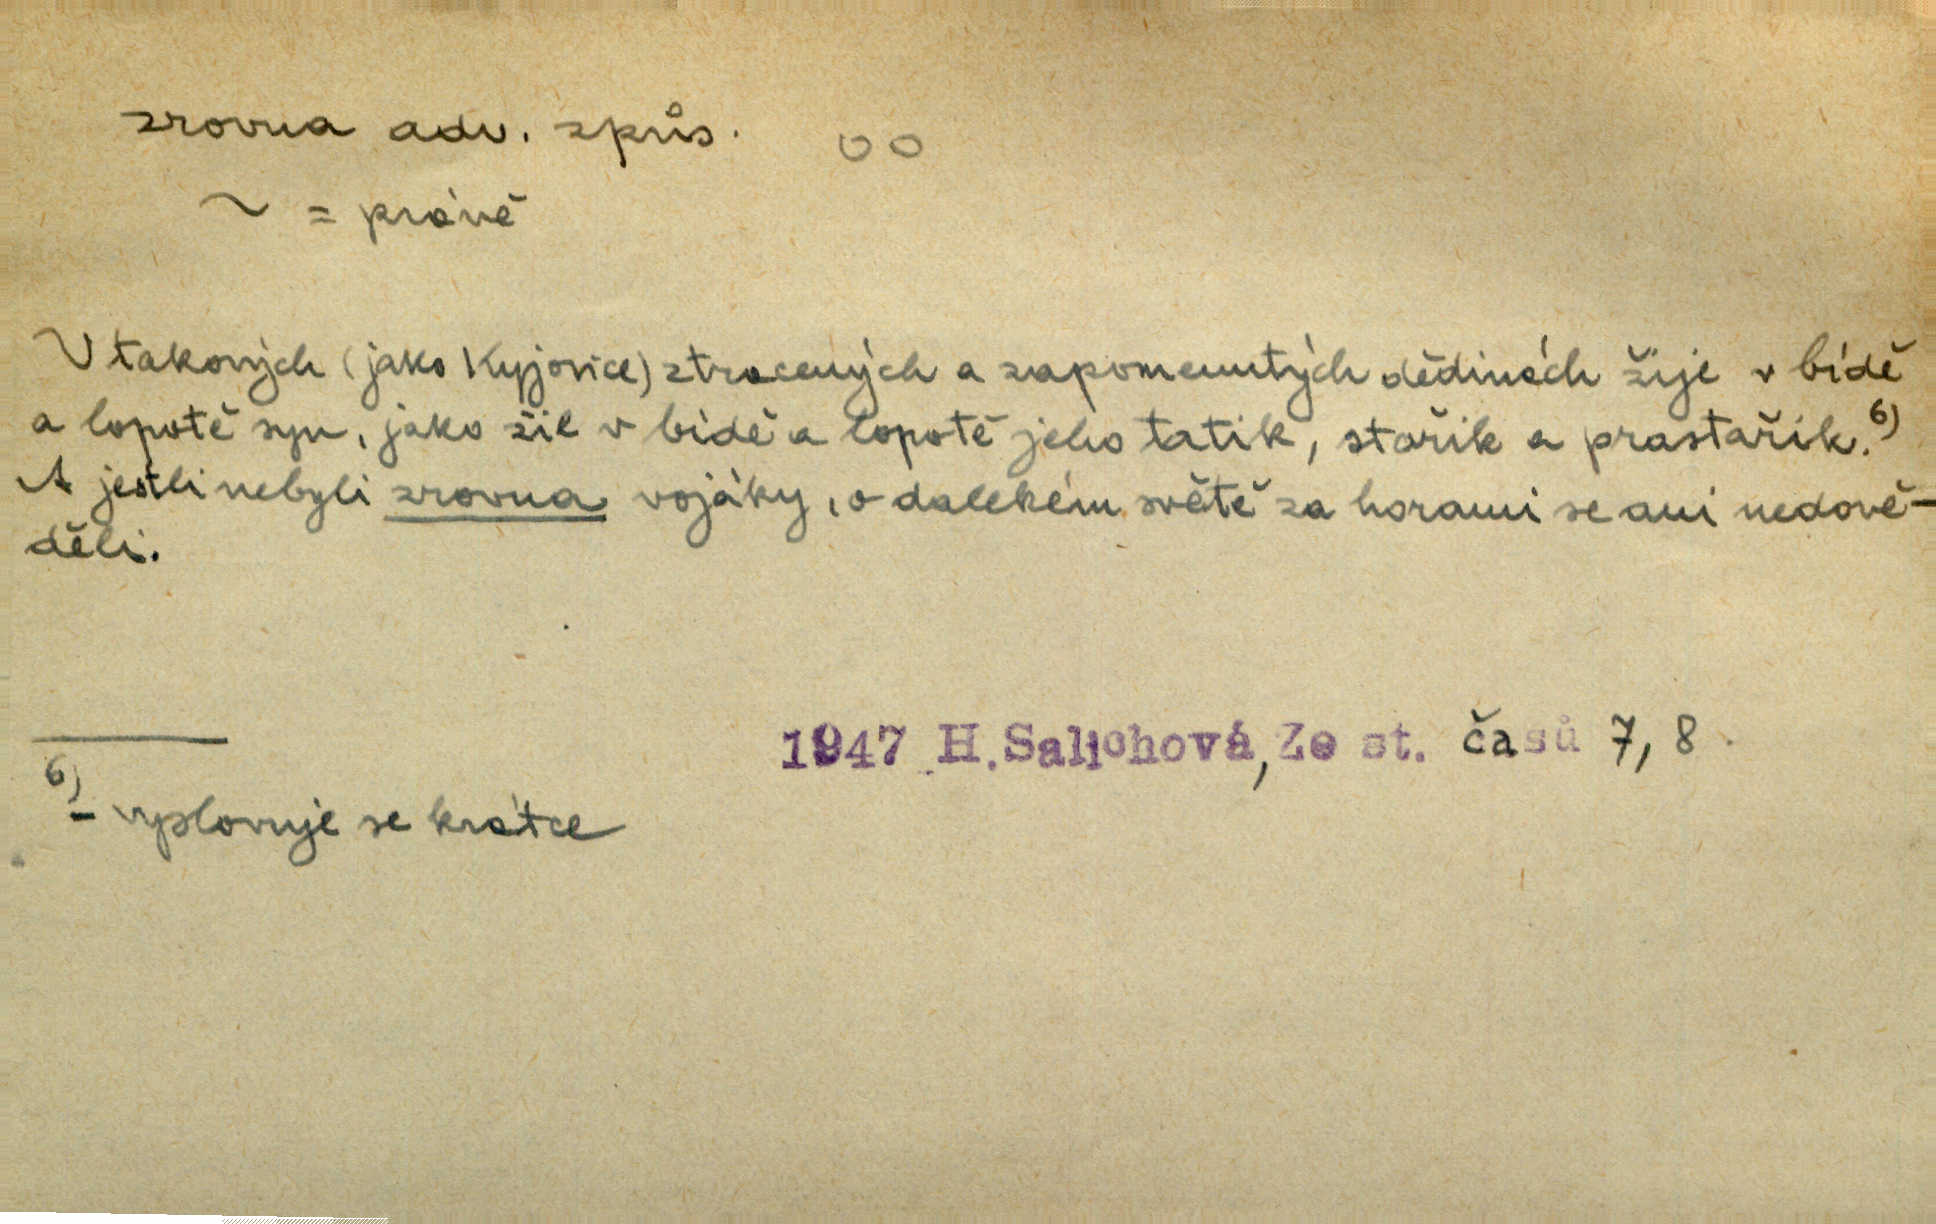 zrovna adv. způs. ᴗo
~ = právě
V takových (jako Kyjovice) ztracených a zapomenutých dědinách žije v bídě
a lopotě syn, jako žil v bídě a lopotě jeho tatik, stařik a prastařik.⁶⁾
A jestli nebyli zrovna vojáky, o dalekém světě za horami se ani nedově-
děli.
1947 H.Salichová, Ze st. časů 7, 8.
6)
- vyslovuje se krátce